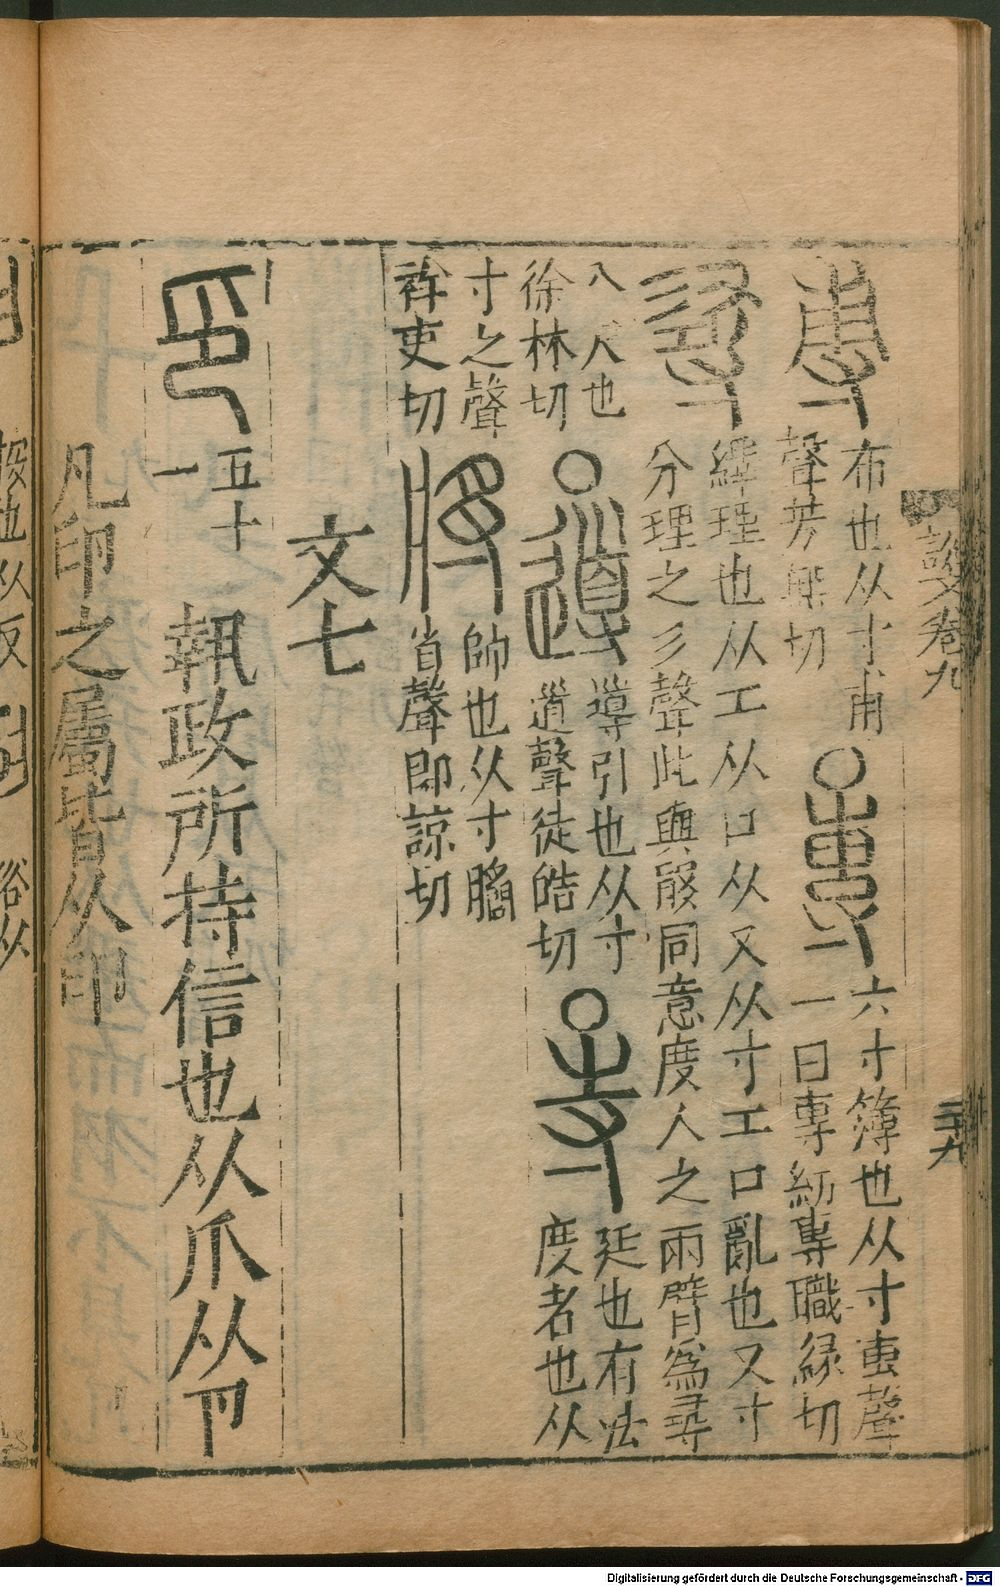 説文卷九
尃 布也从寸甫
聲芳無切
專 六寸簿也从寸叀聲
一曰專紡專職緣切
𢒫 繹理也从工从口从又从寸工口亂也又寸
分理之彡聲此與𤕦同意度人之兩臂為尋
八尺也
徐林切
導 導引也从寸
道聲徒皓切
寺 廷也有法
度者也从
寸之聲
祥吏切
將 帥也从寸牆
省聲即諒切
文七
印 五十一 執政所持信也从爪从卪
凡印之屬皆从印
按也从反 俗从
Digitalisierung gefördert durch die Deutsche Forschungsgemeinschaft - DFG